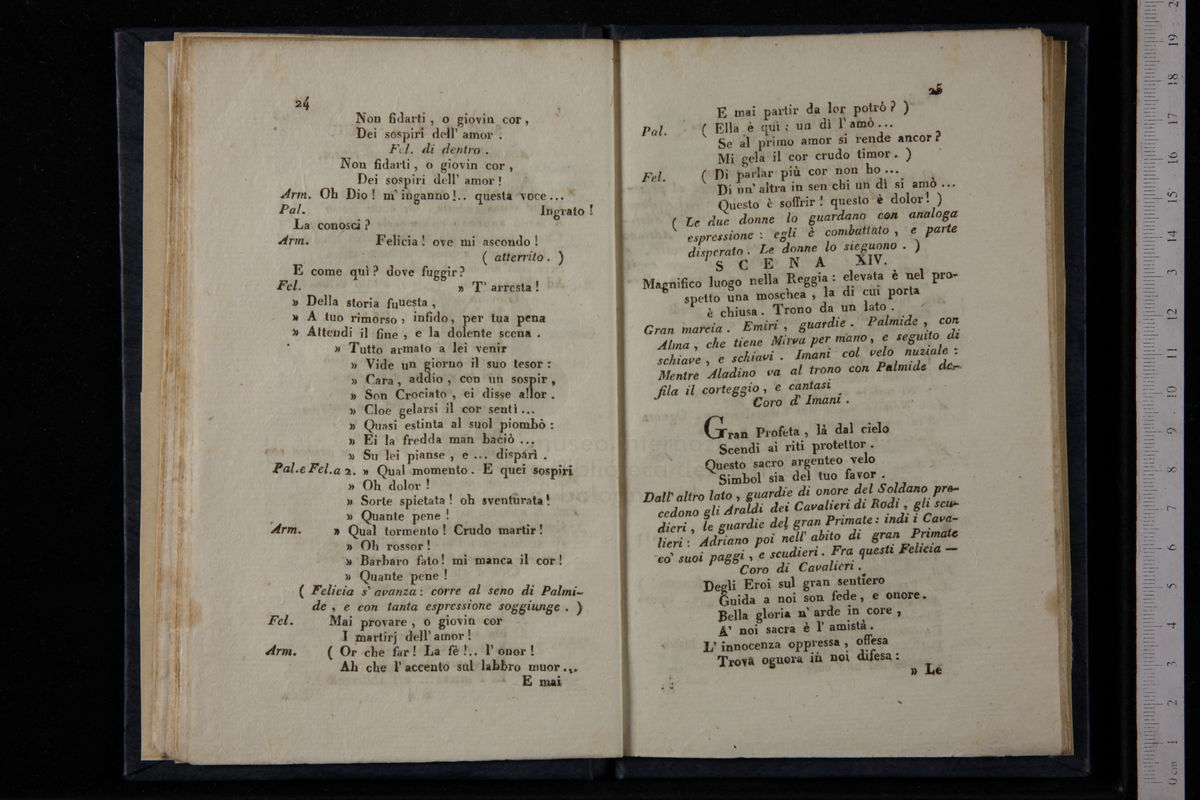 24
Non fidarti , o giovin cor ,
Dei sospiri dell' amor .
Fel. di dentro .
Non fidarti , o giovin cor ,
Dei sospiri dell' amor !
Arm. Oh Dio ! m' inganno !.. questa voce...
Pal. Ingrato !
La conosci ?
Arm. Felicia ! ove mi ascondo !
( atterrito . )
E come quì ? dove fuggir ?
Fel. » T' arresta !
» Della storia fuuesta ,
» A tuo rimorso , infido, per tua pena
» Attendi il fine , e la dolente scena .
» Tutto armato a lei venir
» Vide un giorno il suo tesor :
» Cara , addio , con un sospir ,
» Son Crociato , ei disse allor .
» Cloe gelarsi il cor sentì ...
» Quasi estinta al suol piombò :
» Ei la fredda man baciò ...
» Su lei pianse , e ... disparì .
Pal. e Fel. a 2. » Qual momento . E quei sospiri
» Oh dolor !
» Sorte spietata ! oh sventurata !
» Quante pene !
Arm. » Qual tormento ! Crudo martir !
» Oh rossor !
» Barbaro fato ! mi manca il cor !
» Quante pene !
( Felicia s' avanza : corre al seno di Palmi-
de , e con tanta espressione soggiunge . )
Fel. Mai provare , o giovin cor
I martirj dell' amor !
Arm. ( Or che far ! La fè !.. l' onor !
Ah che l' accento sul labbro muor...
E mai
25
E mai partir da lor potrò ? )
Pal. ( Ella è quì : un dì l' amò ...
Se al primo amor si rende ancor ?
Mi gela il cor crudo timor . )
Fel. ( Di parlar più cor non ho ...
Di un' altra in sen chi un dì si amò ...
Questo è soffrir ! questo è dolor ! )
( Le due donne lo guardano con analoga
espressione : egli è combattuto , e parte
disperato . Le donne lo sieguono . )
S C E N A XIV.
Magnifico luogo nella Reggia : elevata è nel pro-
spetto una moschea , la di cui porta
è chiusa . Trono da un lato .
Gran marcia . Emiri , guardie . Palmide , con
Alma , che tiene Mirva per mano , e seguito di
schiave , e schiavi . Imani col velo nuziale :
Mentre Aladino va al trono con Palmide de-
fila il corteggio , e cantasi
Coro d' Imani .
Gran Profeta , là dal cielo
Scendi ai riti protettor .
Questo sacro argenteo velo
Simbol sia del tuo favor .
Dall' altro lato , guardie di onore del Soldano pre-
cedono gli Araldi dei Cavalieri di Rodi , gli scu-
dieri , le guardie del gran Primate : indi i Cava-
lieri : Adriano poi nell' abito di gran Primate
co' suoi paggi , e scudieri . Fra questi Felicia —
Coro di Cavalieri .
Degli Eroi sul gran sentiero
Guida a noi son fede , e onore .
Bella gloria n' arde in core ,
A' noi sacra è l' amistà .
L' innocenza oppressa , offesa
Trova ognora in noi difesa :
» Le